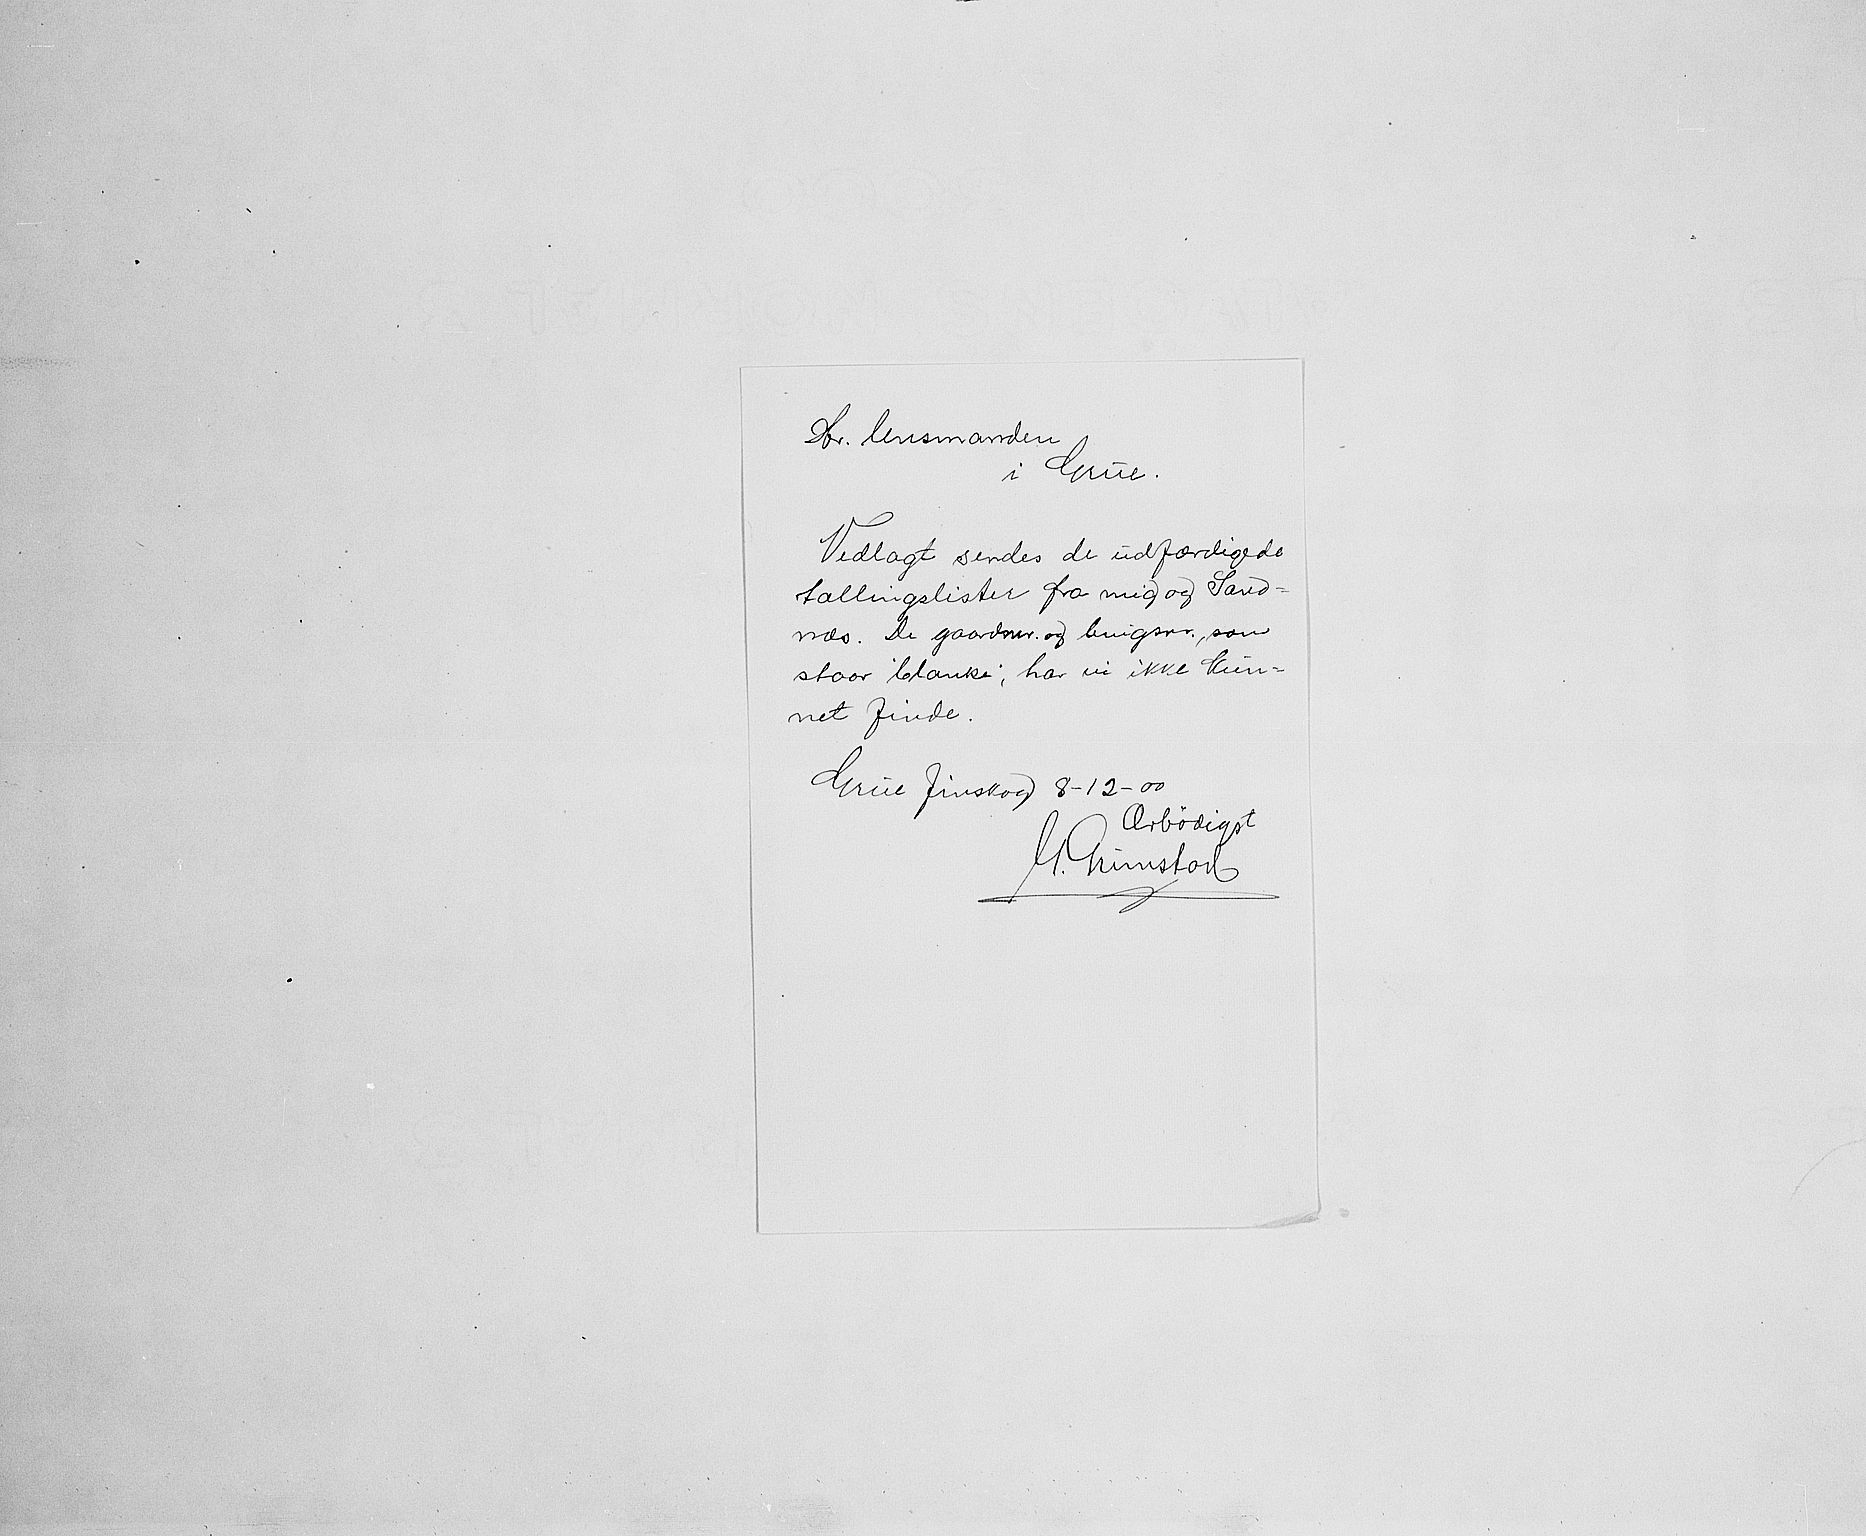 Hr. lensmanden
i Grue.
Vedlagt sendes de udfærdigede
tællingslister fra mig og Sand=
næs. De gaardsnr. og brugsnr., som
staar 'blanke', har vi ikke kun=
net finde.
Grue Finskog 8-12-00
Ærbödigst
G. Grimstad